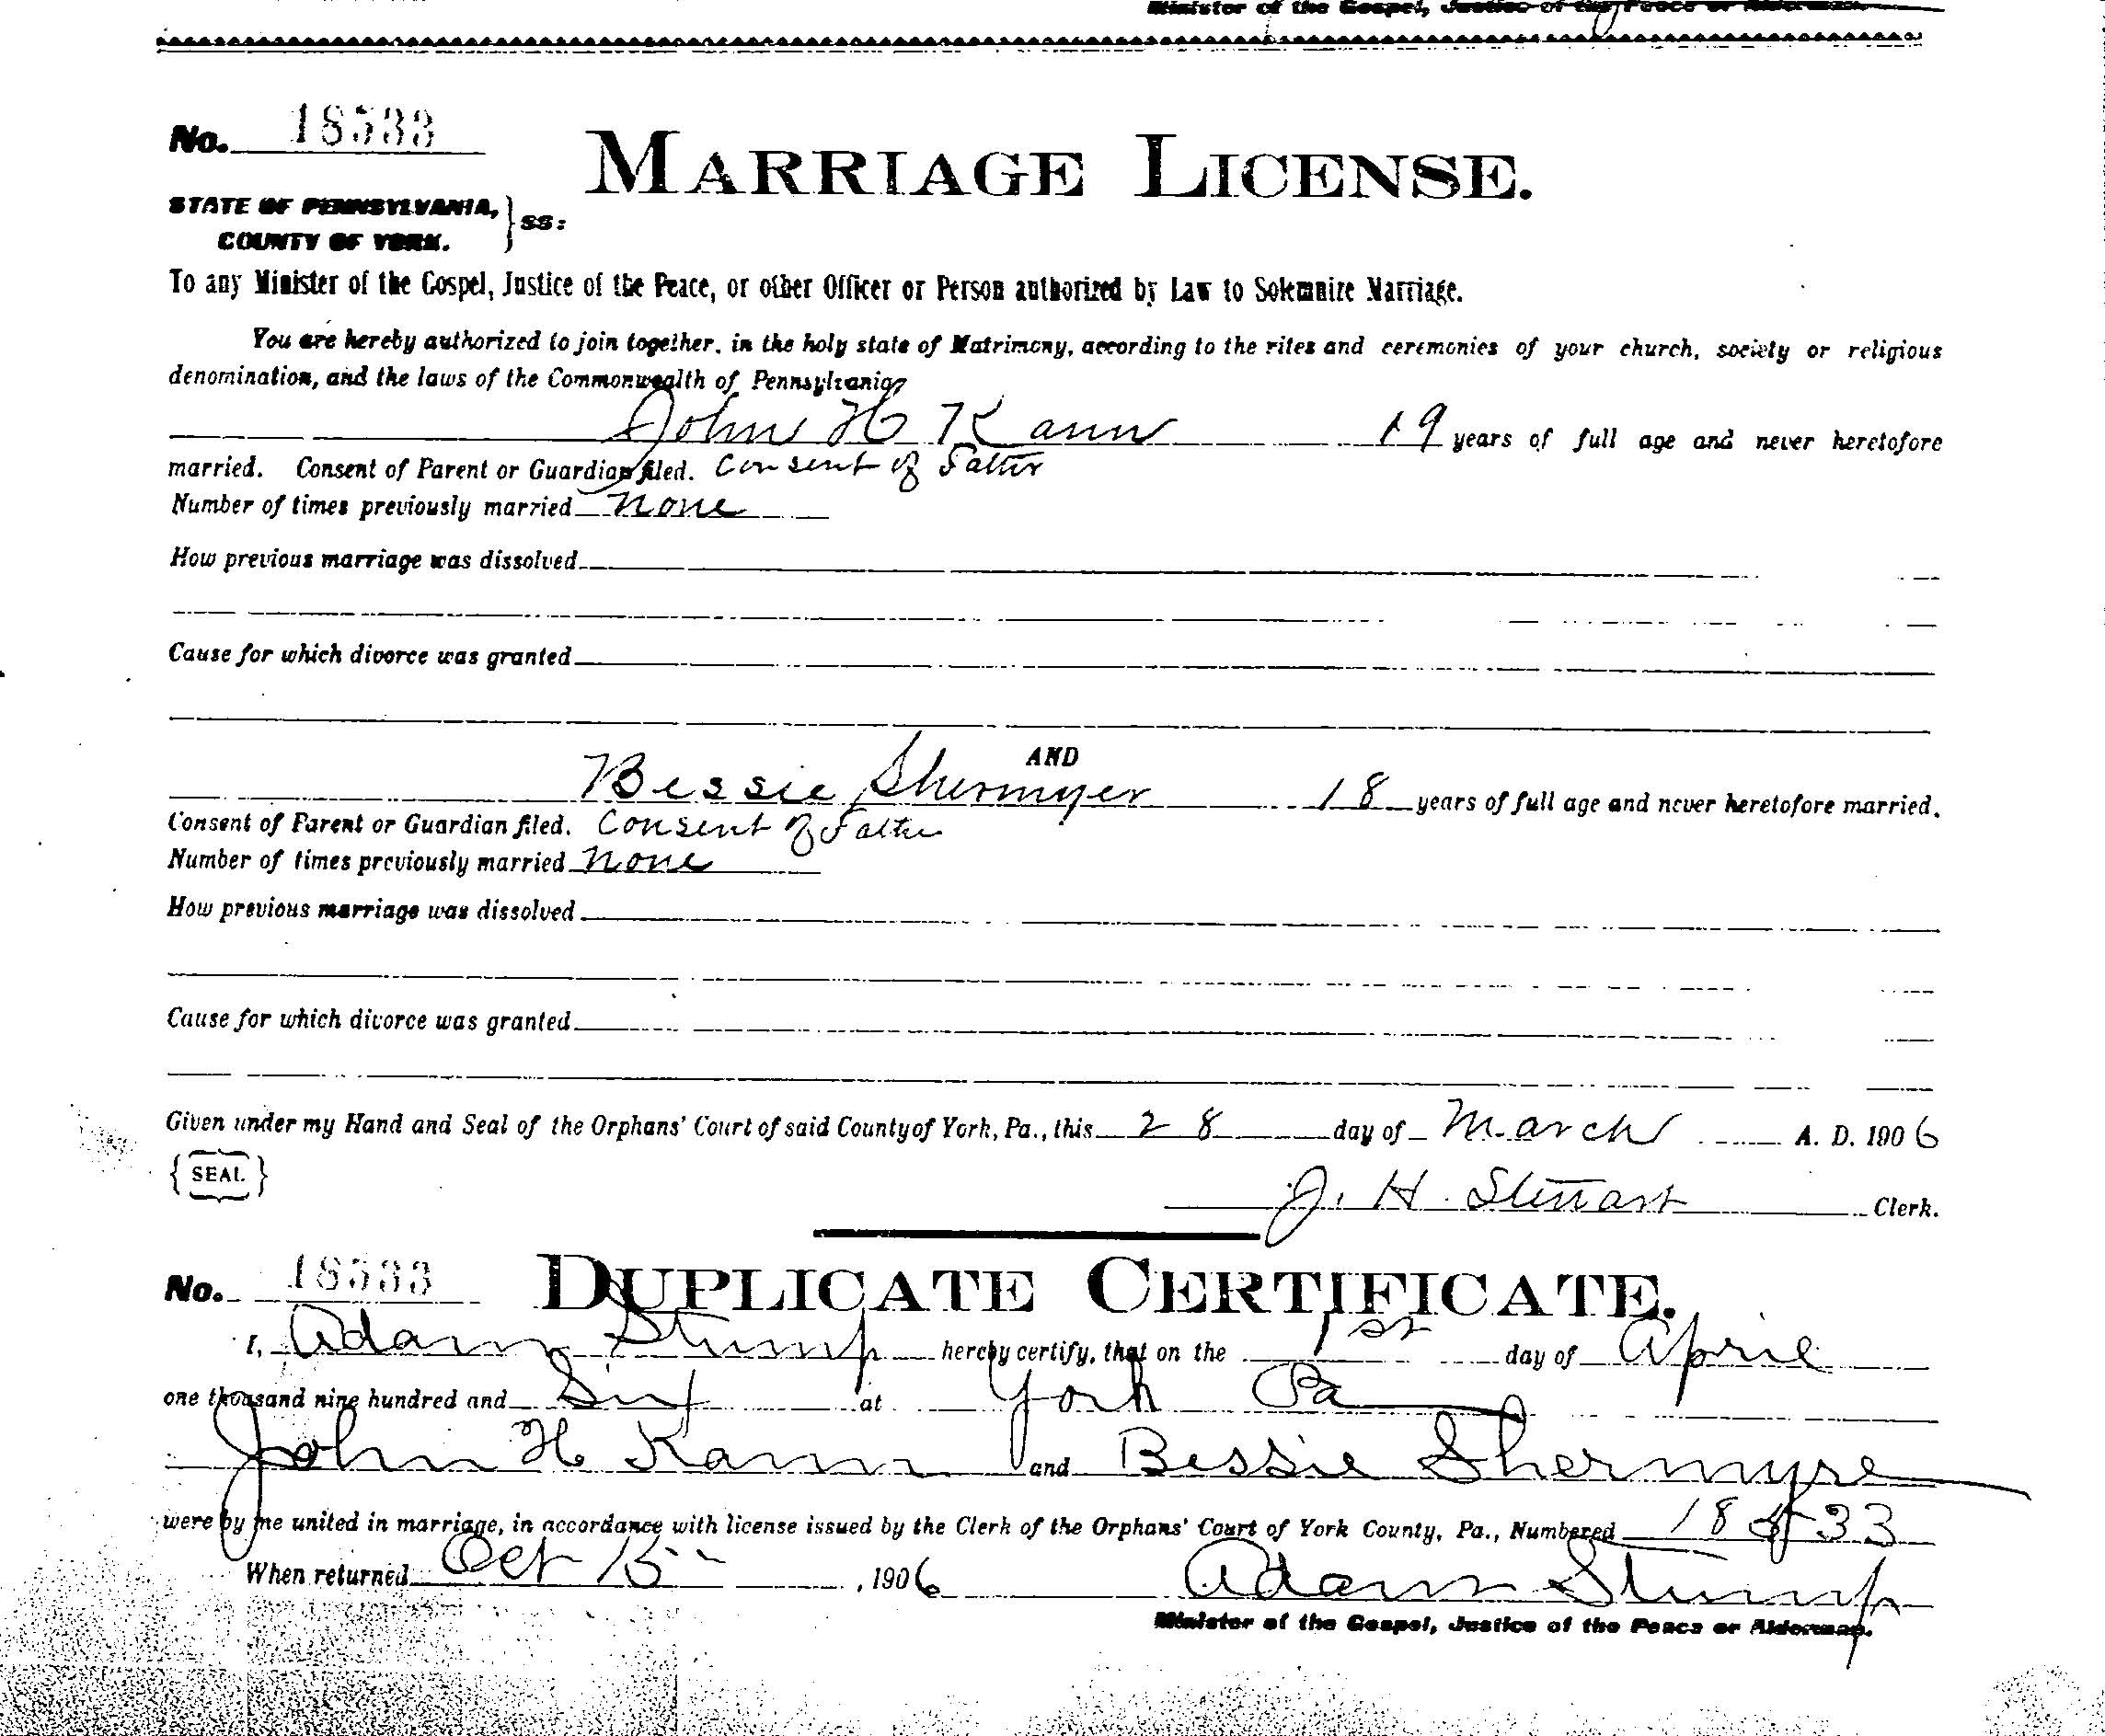 Minister of the Gospel, Justice of the Peace or Alderman.
No. 18533
MARRIAGE LICENSE.
STATE OF PENNSYLVANIA,
COUNTY OF YORK. } SS:
To any Minister of the Gospel, Justice of the Peace, or other Officer or Person authorized by Law to Solemnize Marriage.
You are hereby authorized to join together, in the holy state of Matrimony, according to the rites and ceremonies of your church, society or religious
denomination, and the laws of the Commonwealth of Pennsylvania,
John H Kann 19 years of full age and never heretofore
married. Consent of Parent or Guardian filed. Consent of Father
Number of times previously married none
How previous marriage was dissolved
Cause for which divorce was granted
AND
Bessie Shermyer 18 years of full age and never heretofore married.
Consent of Parent or Guardian filed. Consent of Father
Number of times previously married none
How previous marriage was dissolved
Cause for which divorce was granted
Given under my Hand and Seal of the Orphans' Court of said County of York, Pa., this 28 day of March A. D. 1906
{SEAL}
J. H. Stewart Clerk.
No. 18533
DUPLICATE CERTIFICATE.
I, Adam Stump hereby certify, that on the 1st day of April
one thousand nine hundred and Six at York Pa
John H Kann and Bessie Shermyre
were by me united in marriage, in accordance with license issued by the Clerk of the Orphans' Court of York County, Pa., Numbered 18533
When returned Oct 15 , 1906 Adam Stump
Minister of the Gospel, Justice of the Peace or Alderman.